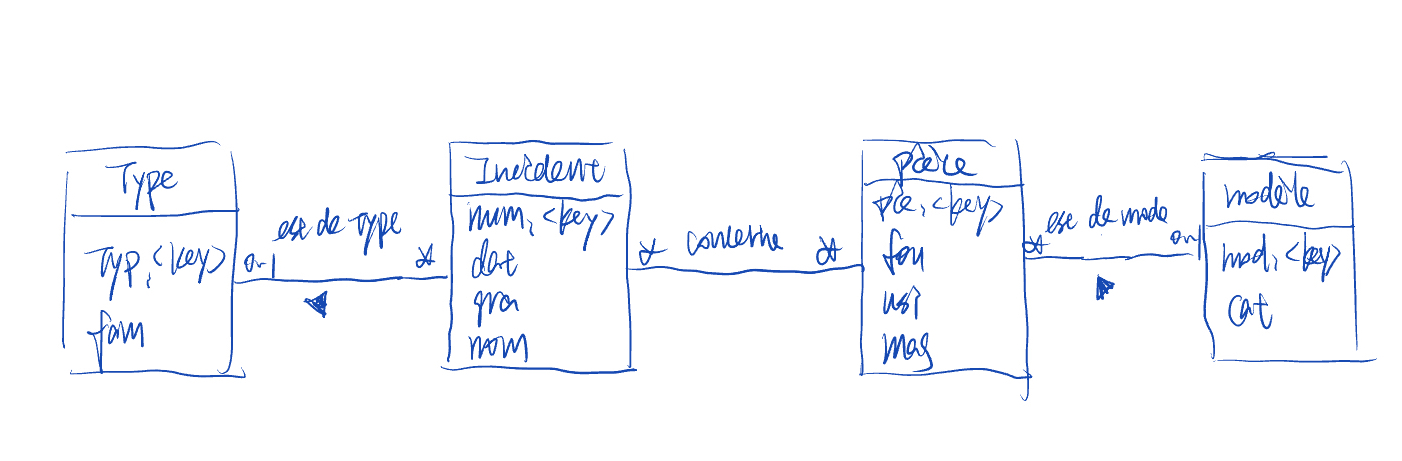 Type
Typ, <key>
fam
0..1
ese de Type
*
Incidente
num, <key>
dat
gra
nom
*
concerne
*
pièce
pce, <key>
fou
usi
mag
*
ese de mode
0..1
modèle
mod, <key>
cat